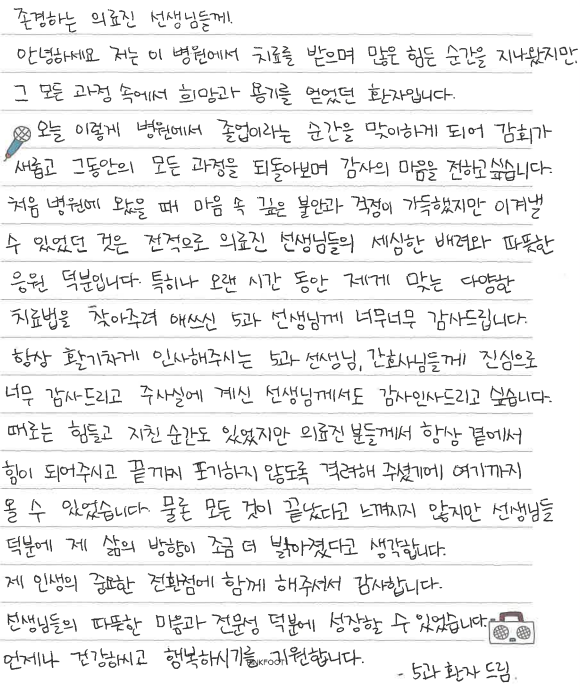 존경하는 의료진 선생님들께.
안녕하세요 저는 이 병원에서 치료를 받으며 많은 힘든 순간을 지나왔지만,
그 모든 과정 속에서 희망과 용기를 얻었던 환자입니다.
오늘 이렇게 병원에서 졸업이라는 순간을 맞이하게 되어 감회가
새롭고 그동안의 모든 과정을 되돌아보며 감사의 마음을 전하고싶습니다.
처음 병원에 왔을 때 마음 속 깊은 불안과 걱정이 가득했지만 이겨낼
수 있었던 것은 전적으로 의료진 선생님들의 세심한 배려와 따뜻한
응원 덕분입니다. 특히나 오랜 시간 동안 제게 맞는 다양한
치료법을 찾아주려 애쓰신 5과 선생님께 너무너무 감사드립니다.
항상 활기차게 인사해주시는 5과 선생님, 간호사님들께 진심으로
너무 감사드리고 주사실에 계신 선생님께서도 감사인사드리고 싶습니다.
때로는 힘들고 지친 순간도 있었지만 의료진 분들께서 항상 곁에서
힘이 되어주시고 끝까지 포기하지 않도록 격려해 주셨기에 여기까지
올 수 있었습니다. 물론 모든 것이 끝났다고 느껴지지 않지만 선생님들
덕분에 제 삶의 방향이 조금 더 밝아졌다고 생각합니다.
제 인생의 중요한 전환점에 함께 해주셔서 감사합니다.
선생님들의 따뜻한 마음과 전문성 덕분에 성장할 수 있었습니다.
언제나 건강하시고 행복하시기를 기원합니다.
- 5과 환자 드림.